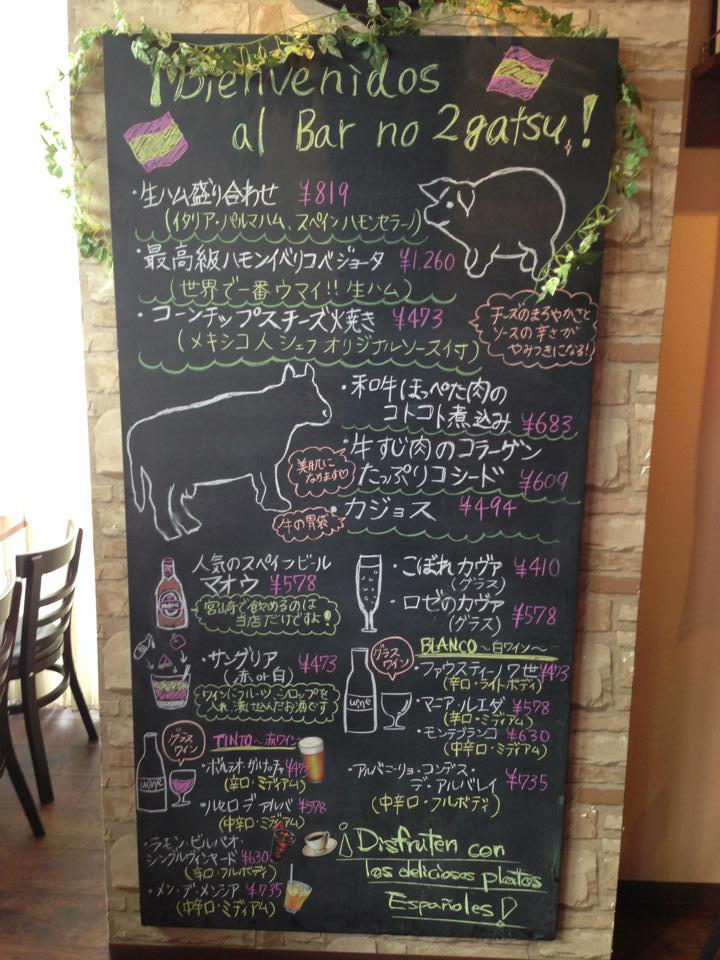 ¡Bienvenidos
al Bar no 2gatsu!
・生ハム盛り合わせ ¥819
(イタリア・パルマハム、スペインハモンセラーノ)
・最高級ハモンイベリコベジョータ ¥1,260
(世界で一番ウマイ!!生ハム)
・コーンチップスチーズ焼き ¥473
(メキシコ人シェフオリジナルソース付)
チーズのまろやかさと
ソースの辛さが
やみつきになる!
・和牛ほっぺた肉の
コトコト煮込み ¥683
・牛すじ肉のコラーゲン
たっぷりコシード ¥609
美肌に
なります♡
・カジョス ¥494
牛の胃袋
人気のスペインビール
マオウ ¥578
宮崎で飲めるのは
当店だけですよ!
・サングリア ¥473
(赤or白)
ワインにフルーツ、シロップを
入れ漬け込んだお酒です
グラス
ワイン
TINTO〜赤ワイン〜
wine
・ボルサオ ガルナッチャ ¥473
(辛口・ミディアム)
・ルセロ デ アルバ ¥578
(中辛口・ミディアム)
・ラモン・ビルバオ・
シングルヴィンヤード ¥630
(辛口・フルボディ)
・メン・デ・メンシア ¥735
(中辛口・ミディアム)
・こぼれカヴァ ¥410
(グラス)
・ロゼのカヴァ ¥578
(グラス)
グラス
ワイン
BLANCO〜白ワイン〜
wine
・ファウスティーノ7世 ¥473
(辛口・ライトボディ)
・マニア・ルエダ ¥578
(辛口・ミディアム)
・モンテブランコ ¥630
(中辛口・ミディアム)
・アルバニーリョ・コンデス・
デ・アルバレイ ¥735
(中辛口・フルボディ)
¡Disfruten con
los deliciosos platos
Españoles!